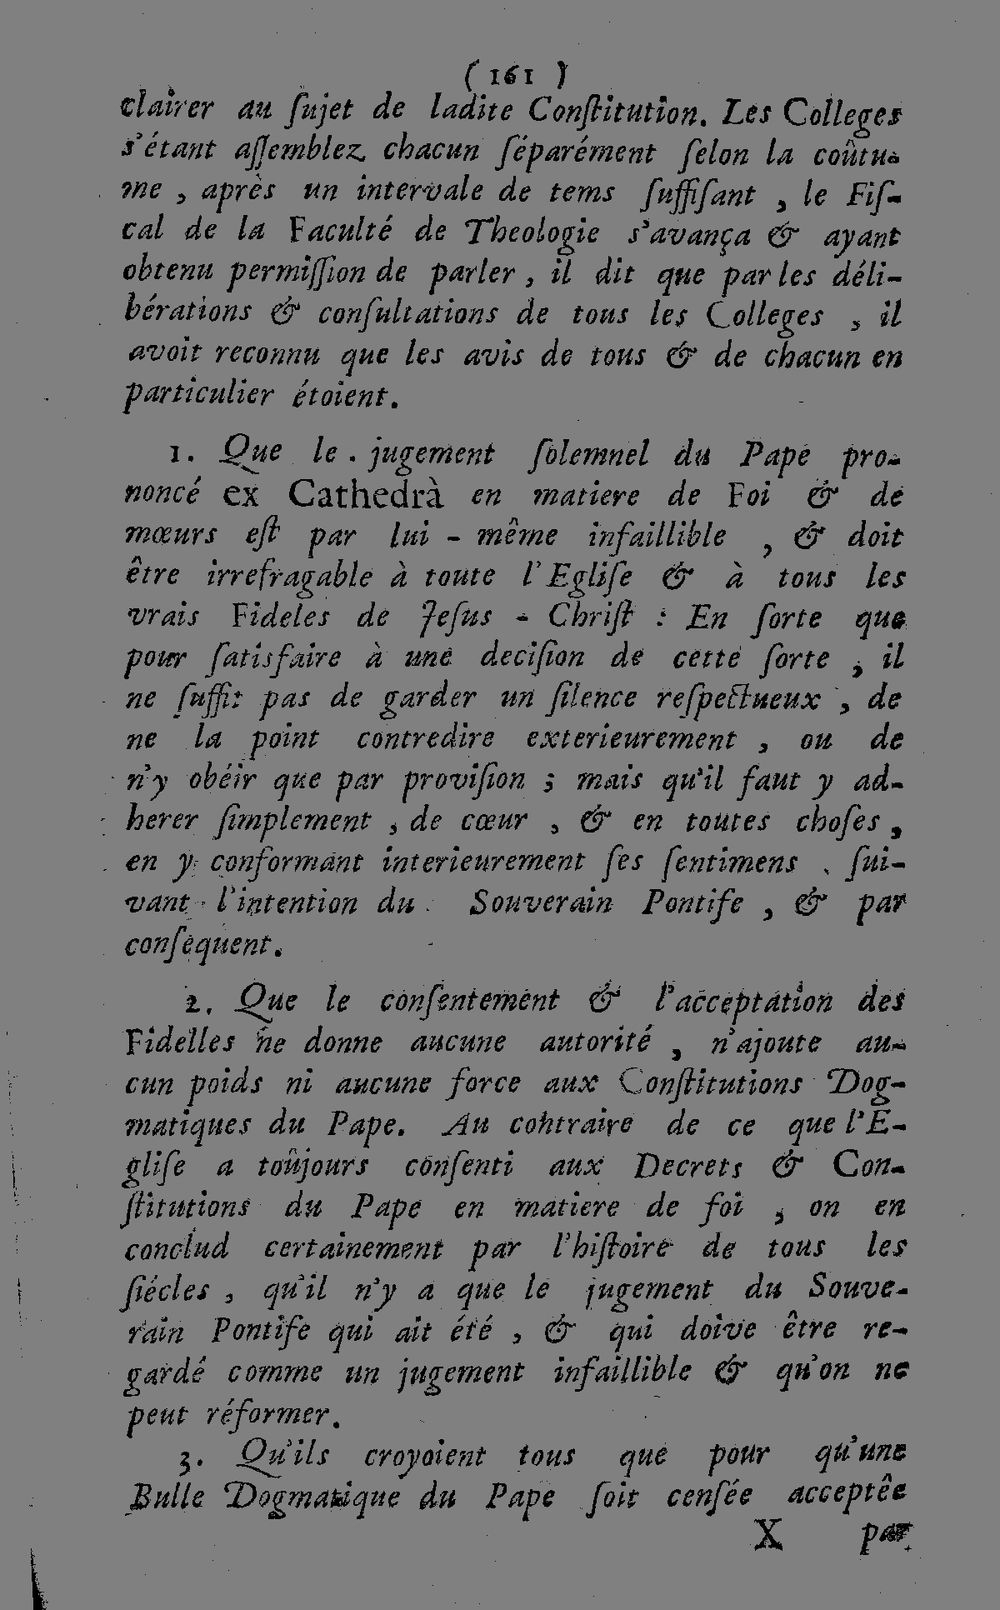 ( 161 )
clairer au ſujet de ladite Conſtitution. Les Colleges
s'étant aſſemblez chacun ſéparément ſelon la coûtu-
me , après un intervale de tems ſuffiſant , le Fiſ-
cal de la Faculté de Theologie s'avança & ayant
obtenu permiſſion de parler , il dit que par les déli-
bérations & conſultations de tous les Colleges , il
avoit reconnu que les avis de tous & de chacun en
particulier étoient.
1. Que le . jugement ſolemnel du Pape pro-
noncé ex Cathedrà en matiere de Foi & de
mœurs eſt par lui - même infaillible , & doit
être irrefragable à toute l'Egliſe & à tous les
vrais Fideles de Jeſus - Chriſt : En ſorte que
pour ſatisfaire à une deciſion de cette ſorte , il
ne ſuffit pas de garder un ſilence reſpectueux , de
ne la point contredire exterieurement , ou de
n'y obéir que par proviſion ; mais qu'il faut y ad-
herer ſimplement , de cœur , & en toutes choſes ,
en y conformant interieurement ſes ſentimens , ſui-
vant l'intention du Souverain Pontife , & par
conſequent.
2. Que le conſentement & l'acceptation des
Fidelles ne donne aucune autorité , n'ajoute au-
cun poids ni aucune force aux Conſtitutions Dog-
matiques du Pape. Au contraire de ce que l'E-
gliſe a toûjours conſenti aux Decrets & Con-
ſtitutions du Pape en matiere de foi , on en
conclud certainement par l'hiſtoire de tous les
ſiécles , qu'il n'y a que le jugement du Souve-
rain Pontife qui ait été , & qui doive être re-
gardé comme un jugement infaillible & qu'on ne
peut réformer.
3. Qu'ils croyoient tous que pour qu'une
Bulle Dogmatique du Pape ſoit cenſée acceptée
X par